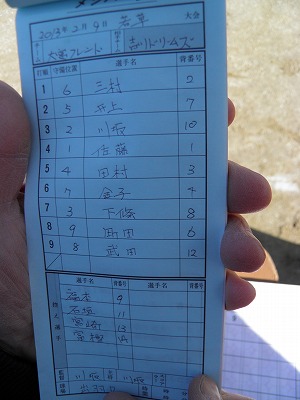 2013年2月9日 若草 大会
吉川ドリームズ
打順 守備位置 選手名 選手名 背番号
1 6 三村 2
2 5 井上 7
3 2 川坂 10
4 1 佐藤 1
5 4 田村 3
6 7 金子 4
7 3 下條 8
8 9 6
9 8 武田 12
控え選手 選手名 背番号 選手名 背番号
福本 9
石垣 11
宮崎 13
14
監督